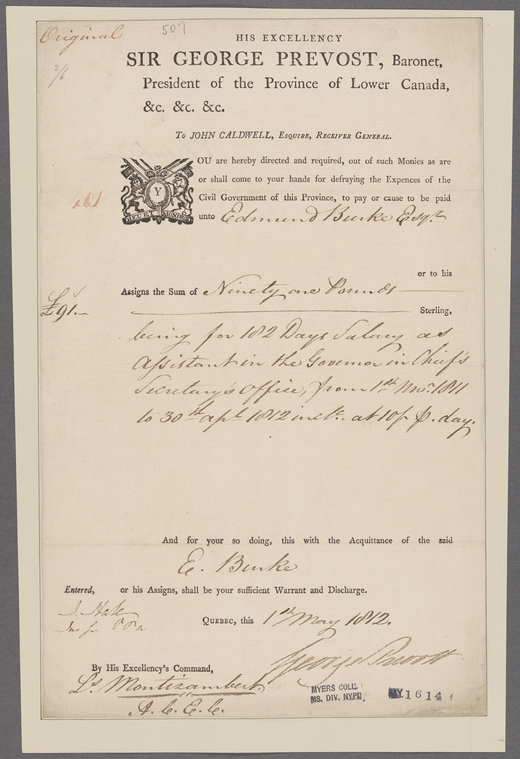 Original
507
2/6
HIS EXCELLENCY
SIR GEORGE PREVOST, Baronet,
President of the Province of Lower Canada,
&c. &c. &c.
To JOHN CALDWELL, Esquire, Receiver General.
YOU are hereby directed and required, out of such Monies as are
or shall come to your hands for defraying the Expences of the
Civil Government of this Province, to pay or cause to be paid
unto Edmund Burke Esqr.
or to his
Assigns the Sum of Ninety one Pounds
£91.— Sterling,
being for 182 Days Salary as
Assistant in the Governor in Chief's
Secretary's Office, from 1st Novr. 1811
to 30th apl. 1812 incle. at 10/ p. day.
And for your so doing, this with the Acquittance of the said
E. Burke
Entered, or his Assigns, shall be your sufficient Warrant and Discharge.
J. Hale
Quebec, this 1st May 1812.
George Prevost
By His Excellency's Command,
Ls. Montizambert
A. C. E. C.
MYERS COLL.
MS. DIV. NYPL
MY 1614